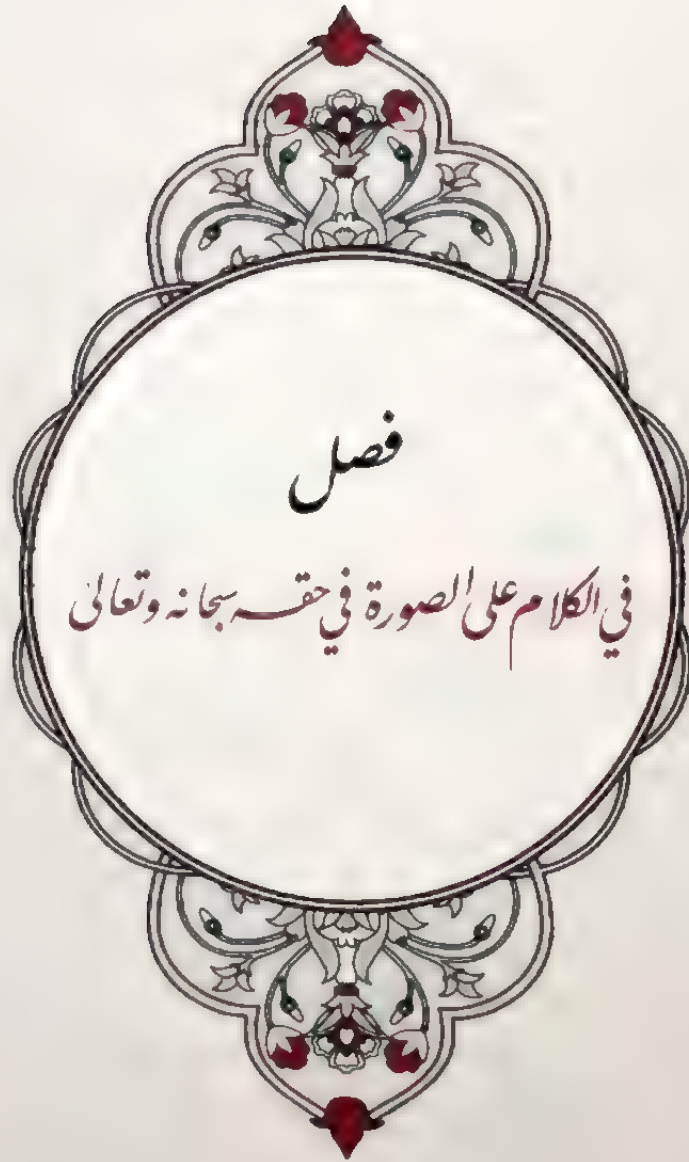 فصل
في الكلام على الصورة في حقه سبحانه وتعالى